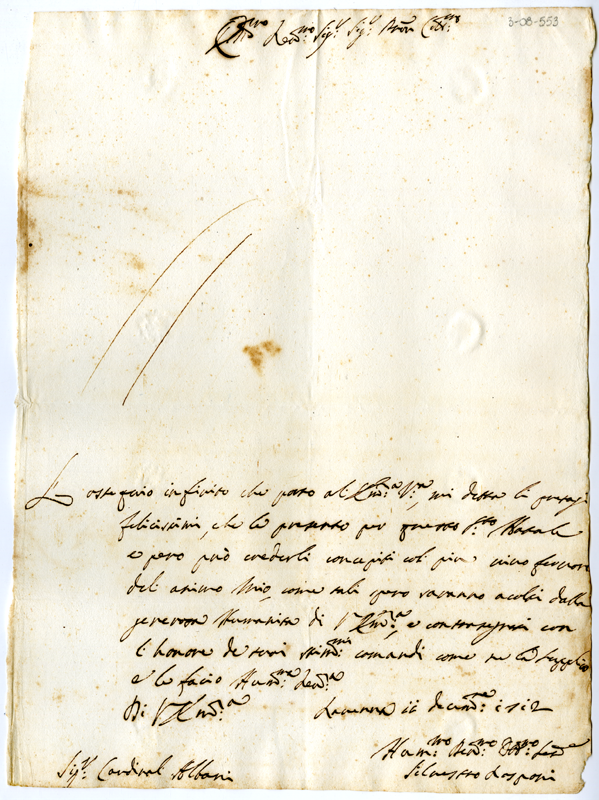 3-08-553
Em.mo Rev.mo Sig.r Sig.r Pron Col.mo
L ossequio infinito che porto al Em.a V.a, mi detta li presagi
felicissimi, che le presento per questo S.to Natale
e però può crederli concepiti col più vivo fervore
del animo Mio, come tali spero saranno acolti dalla
generosa Humanità di V Em.a, e contrasegni con
l honore de suoi stim.mi comandi come ne la supplico
e le facio Hum.ma Rev.a
Di V Em.a Ravenna 11 decem.re 1712
Hum.mo Dev.mo Obl.mo Ser.e
Sig.r Cardinal Albani Silvestro Rasponi